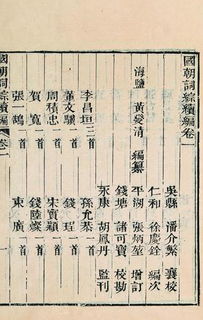 國朝詞綜續編卷一
海鹽 黃燮清 編纂
吳縣 潘介繁 襄校
仁和 徐慶銓 編次
平湖 張炳堃 增訂
錢塘 諸可寶 校勘
永康 胡鳳丹 監刊
李昌垣 三首 孫允恭 一首
董文驥 一首 錢 珵 一首
周積忠 一首 宋實穎 一首
賀 寬 一首 錢陸燦 一首
張一鵠 一首 東 廣 一首
國朝詞綜續編 卷一